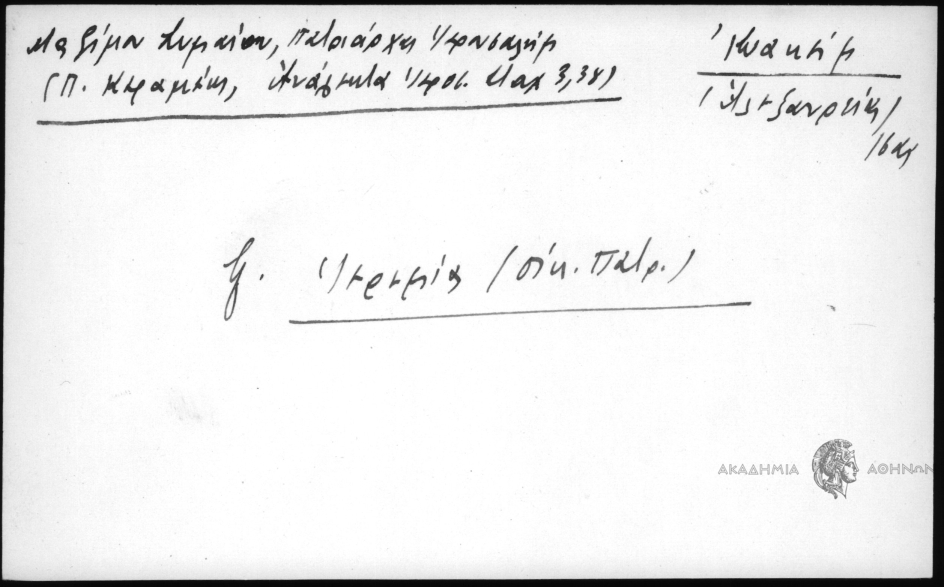 Μαξίμου Συμαίου, Πατριάρχης Ἱεροσολύμ
(Π. Κεραμέως, Ἀνάλεκτα Ἱεροσ. Σταχ 3, 38)
Ἰωακείμ
(Ἀλεξανδρείας)
16 αι
βλ. Ἱερεμίας (οἰκ. Πατρ.)
ΑΚΑΔΗΜΙΑ ΑΘΗΝΩΝ